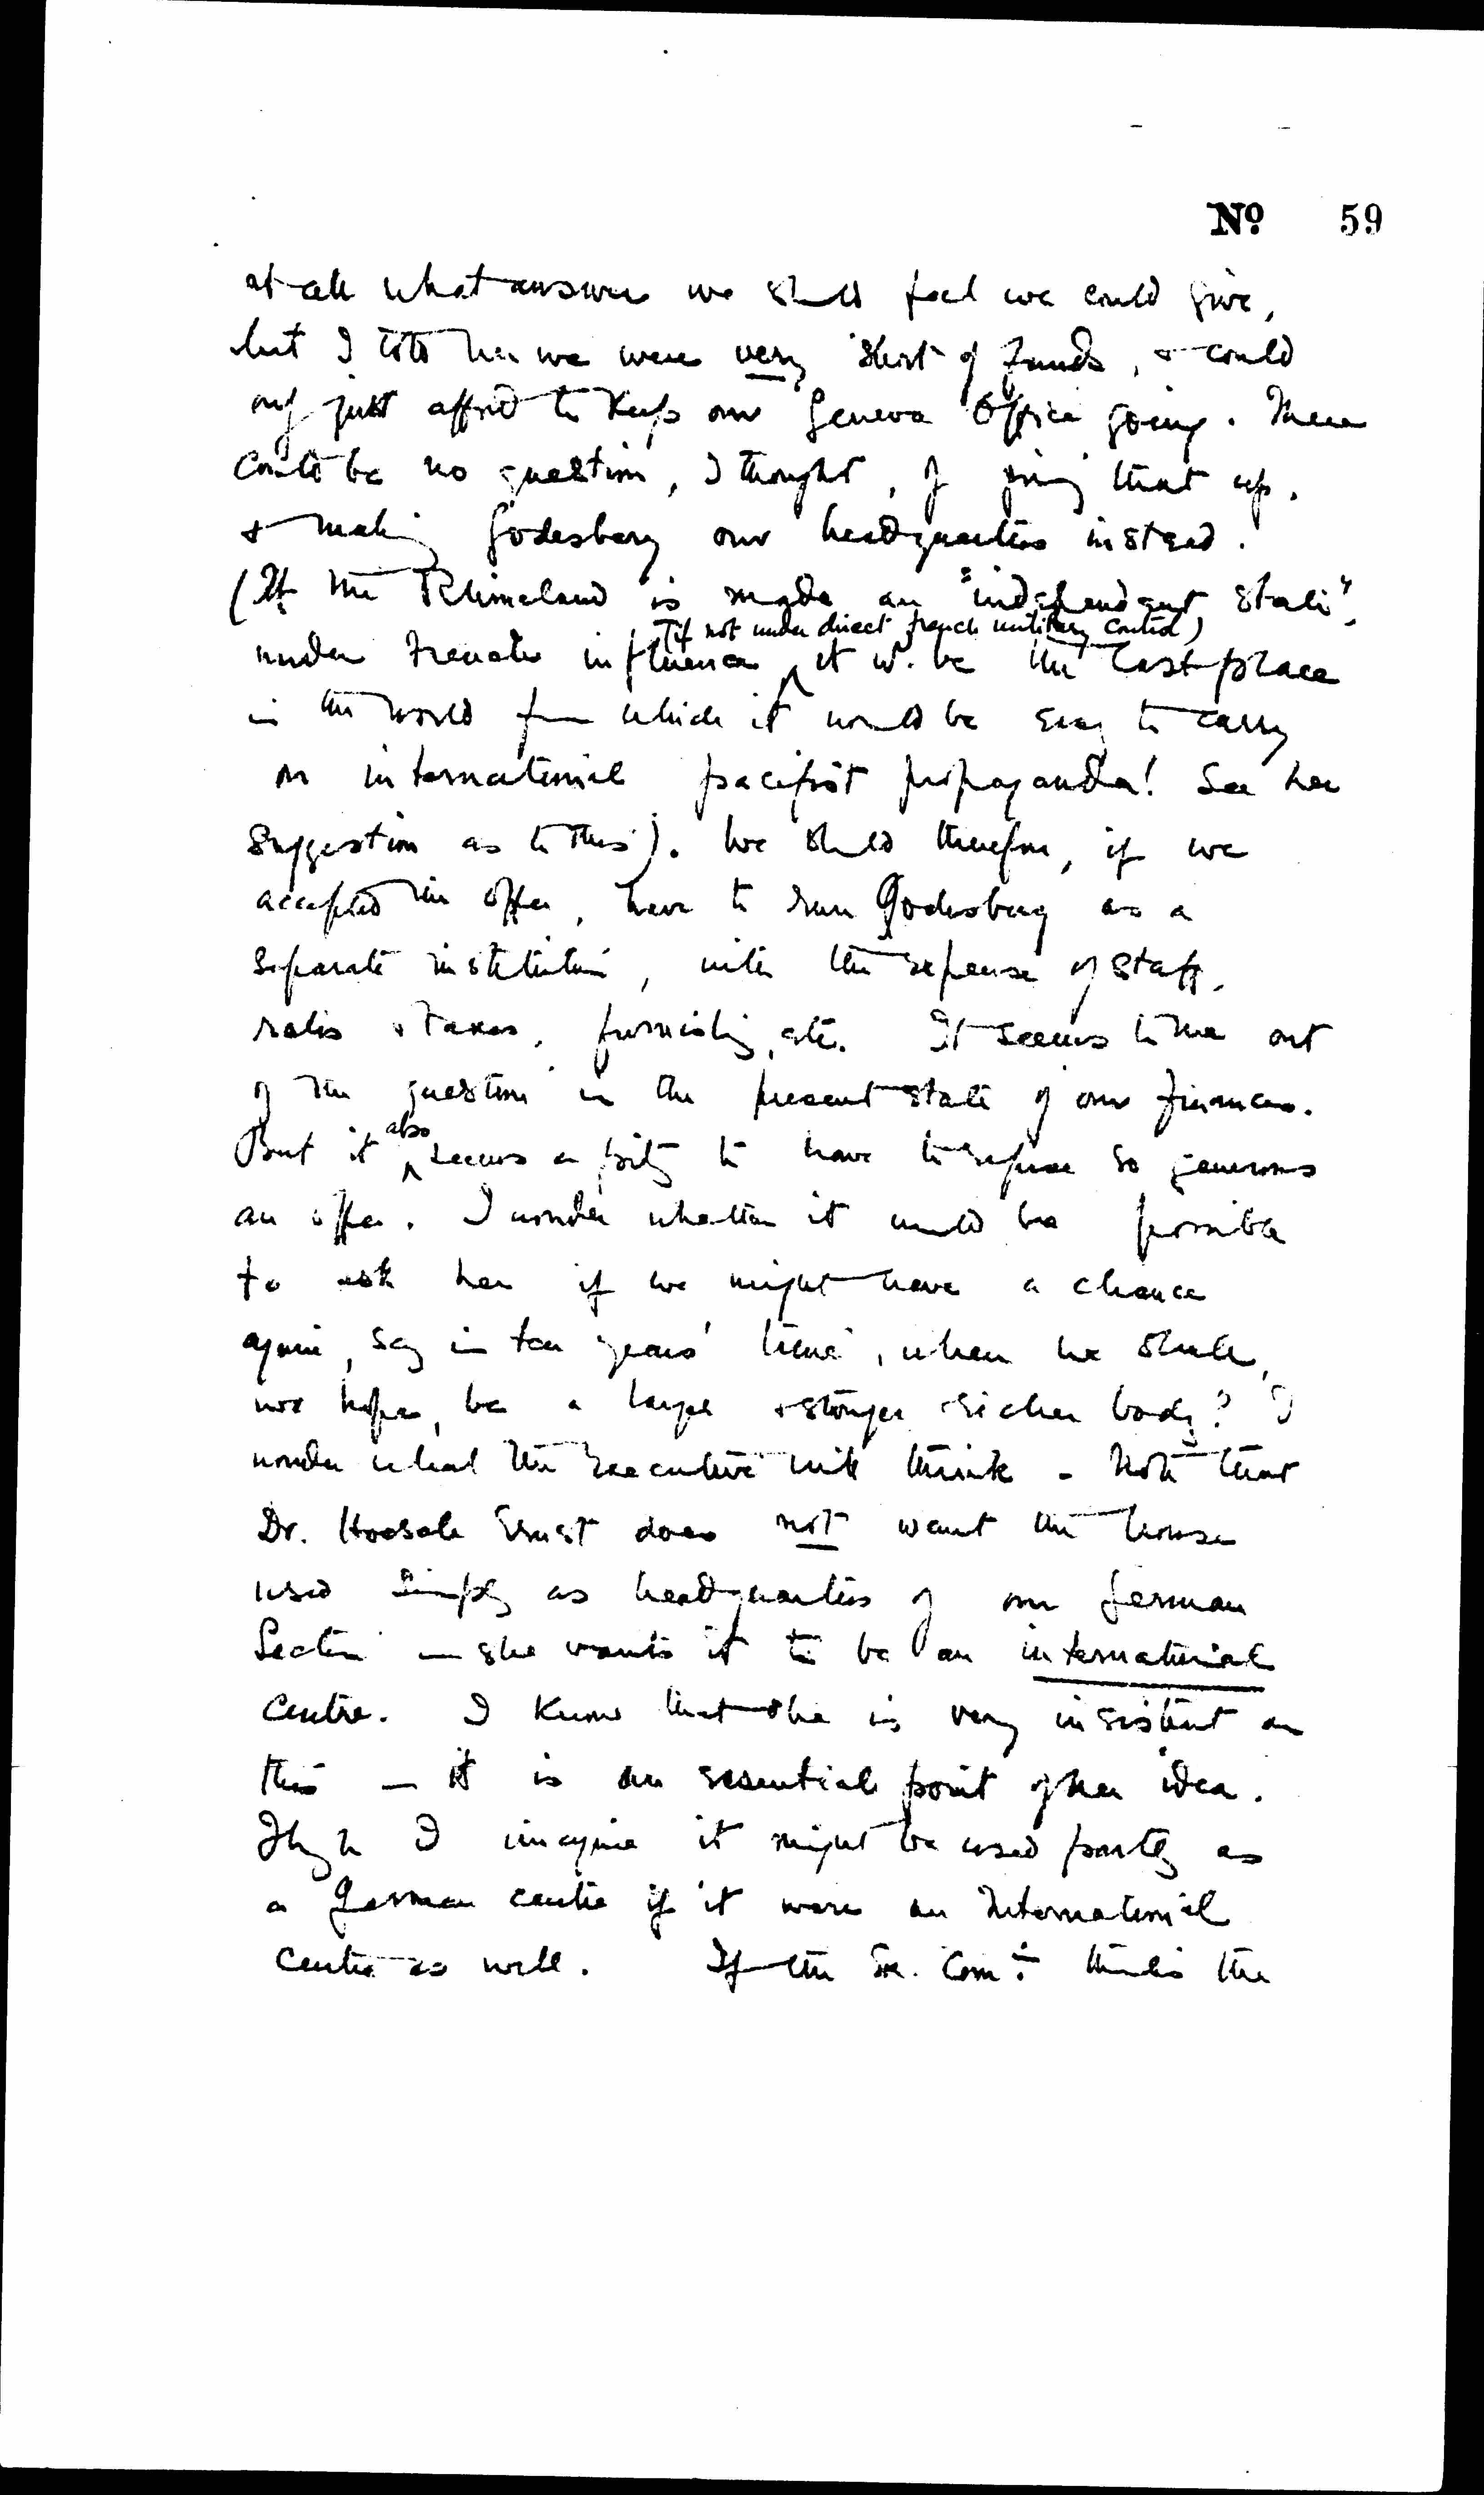 No 59
at all what answer we should feel we could give,
but I told her we were very short of funds, & could
only just afford to keep our Geneva Office going. There
could be no question, I thought, of giving that up,
& making Godesberg our headquarters instead.
(If the Rhineland is made an "independent state",
(if not under direct French military control)
under French influence it wd. be the last place
in the world from which it would be easy to carry
on international pacifist propaganda! See her
suggestion as to this). We should therefore, if we
accepted the offer, have to run Godesberg as a
separate institution, with the expense of staff,
rates & taxes, furnishing, etc. It seems to me out
of the question in the present state of our finances.
But it also seems a pity to have to refuse so generous
an offer. I wonder whether it would be possible
to ask her if we might have a chance
again, say in ten years' time, when we shall,
we hope, be a larger & stronger & richer body? I
wonder what the Executive will think - Note that
Dr. Ernst does not want the house
used simply as headquarters of our German
Section - she wants it to be an international
centre. I know that she is very insistent on
this - it is an essential point of her idea.
Though I imagine it might be used partly as
a German centre if it were an International
centre as well. If the Ex. Comtee thinks the